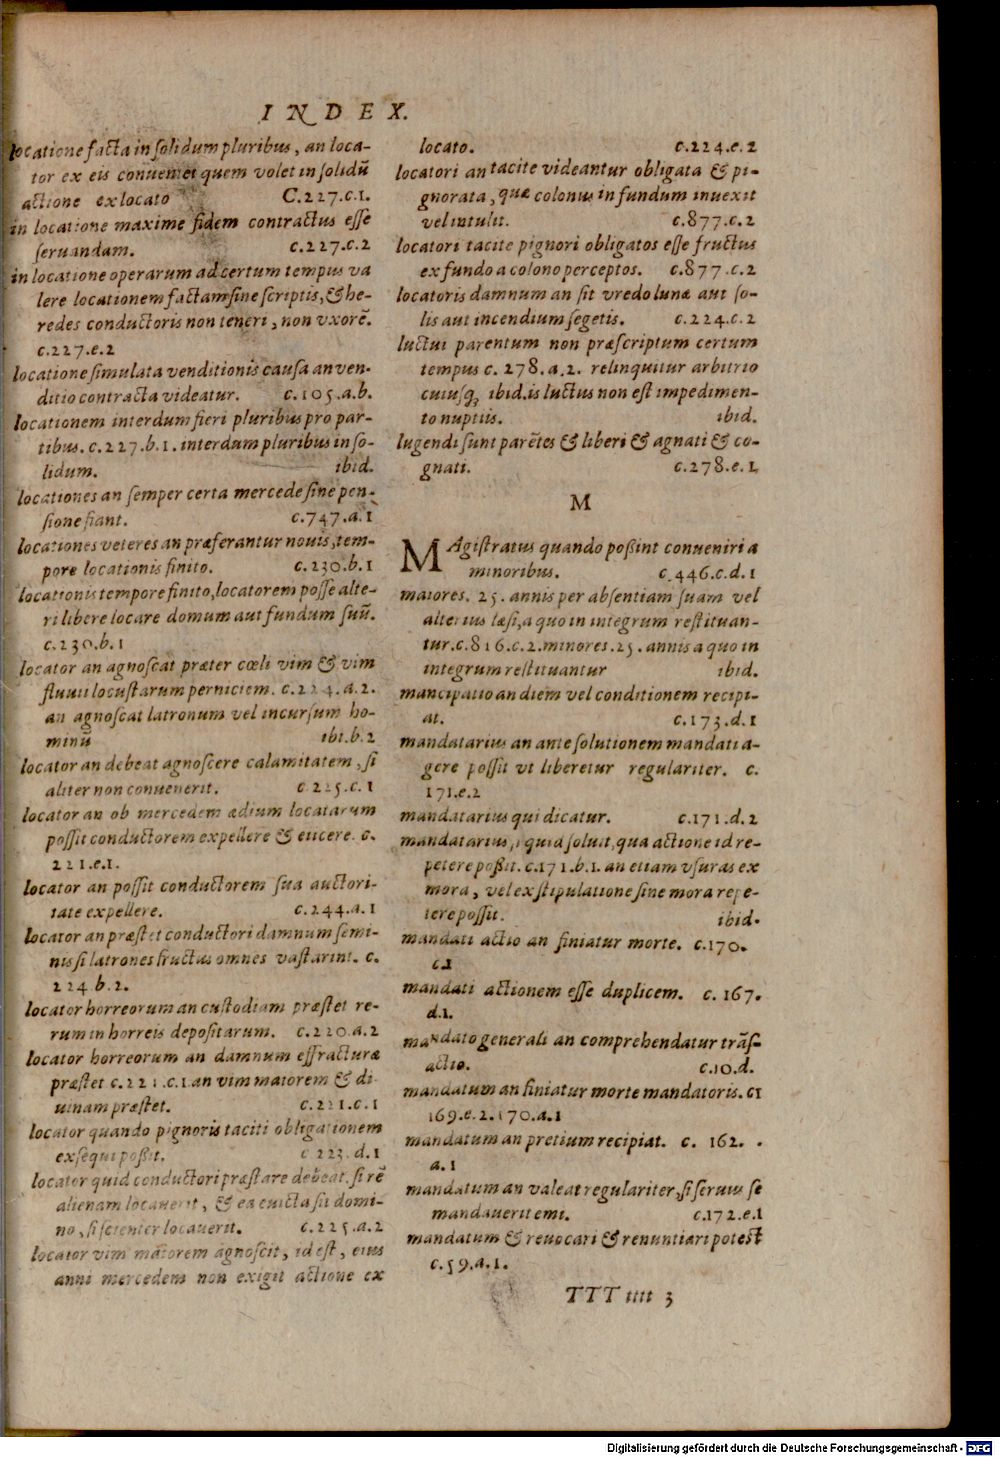 INDEX.
locatione facta in ſolidum pluribus, an loca-
tor ex eis conueniet quem volet in ſolidũ
actione ex locato C.227.c.1.
in locatione maxime fidem contractus eſſe
ſeruandam. c.227.c.2
in locatione operarum ad certum tempus va
lere locationem factam ſine ſcriptis, & he-
redes conductoris non teneri, non vxorẽ.
c.227.e.2
locatione ſimulata venditionis cauſa an ven-
ditio contracta videatur. c.105.a.b.
locationem interdum fieri pluribus pro par-
tibus. c.227.b.1. interdum pluribus in ſo-
lidum. ibid.
locationes an ſemper certa mercede ſine pen-
ſione fiant. c.747.a.1
locationes veteres an præferantur nouis, tem-
pore locationis finito. c.230.b.1
locationis tempore finito, locatorem poſſe alte-
ri libere locare domum aut fundum ſuũ.
c.230.b.1
locator an agnoſcat præter cœli vim & vim
fluuii locuſtarum perniciem. c.224.a.2.
an agnoſcat latronum vel incurſum ho-
minũ ibi.b.2
locator an debeat agnoſcere calamitatem, ſi
aliter non conuenerit. c.225.c.1
locator an ob mercedem ædium locatarum
poſſit conductorem expellere & eiicere. c.
221.e.1.
locator an poſſit conductorem ſua auctori-
tate expellere. c.244.a.1
locator an præſtet conductori damnum ſemi-
nis ſi latrones fructus omnes vaſtarint. c.
224.b.2.
locator horreorum an cuſtodiam præſtet re-
rum in horreis depoſitarum. c.220.a.2
locator horreorum an damnum effracturæ
præſtet c.221.c.1.an vim maiorem & di
uinam præſtet. c.221.c.1
locator quando pignoris taciti obligationem
exſequi poßit. c 223.d.1
locator quid conductori præſtare debeat, ſi rẽ
alienam locauerit, & ea euicta ſit domi-
no, ſi ſcienter locauerit. c.225.a.2
locator vim maiorem agnoſcit, id eſt, eius
anni mercedem non exigit actione ex
locato. c.224.e.2
locatori an tacite videantur obligata & pi-
gnorata, quæ colonus in fundum inuexit
vel intulit. c.877.c.2
locatori tacite pignori obligatos eſſe fructus
ex fundo a colono perceptos. c.877.c.2
locatoris damnum an ſit vredo lunæ aut ſo-
lis aut incendium ſegetis. c.224.c.2
luctui parentum non præſcriptum certum
tempus c. 278.a.2. relinquitur arbitrio
cuiuſq; ibid.is luctus non eſt impedimen-
to nuptiis. ibid.
lugendi ſunt parẽtes & liberi & agnati & co-
gnati. c.278.e.1
M
MAgiſtratus quando poßint conueniri a
minoribus. c.446.c.d.1
maiores. 25. annis per abſentiam ſuam vel
alterius læſi, a quo in integrum reſtituan-
tur.c.816.c.2.minores.25. annis a quo in
integrum reſtituantur ibid.
mancipatio an diem vel conditionem recipi-
at. c.173.d.1
mandatarius an ante ſolutionem mandati a-
gere poſſit vt liberetur regulariter. c.
171.e.2
mandatarius qui dicatur. c.171.d.2
mandatarius, ſi quid ſoluit, qua actione id re-
petere poßit. c.171.b.1. an etiam vſuras ex
mora, vel ex ſtipulatione ſine mora repe-
tere poſſit. ibid.
mandati actio an finiatur morte. c.170.
c.1
mandati actionem eſſe duplicem. c. 167.
d.1.
mandato generali an comprehendatur trãſ-
actio. c.10.d.
mandatum an finiatur morte mandatoris. c1
169.e.2.170.a.1
mandatum an pretium recipiat. c. 162. .
a.1
mandatum an valeat regulariter, ſi ſeruus ſe
mandauerit emi. c.172.e.1
mandatum & reuocari & renuntiari poteſt
c.59.a.1.
TTT iiii 3
Digitalisierung gefördert durch die Deutsche Forschungsgemeinschaft - DFG